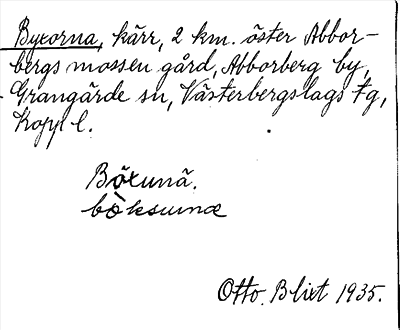 Byxorna, kärr, 2 km. öster Abbor-
bergs mossen gård, Abborberg by,
Grangärde sn, Västerbergslags fg,
Kopp l.
Böxunä.
bòksunæ
Otto Blixt 1935.